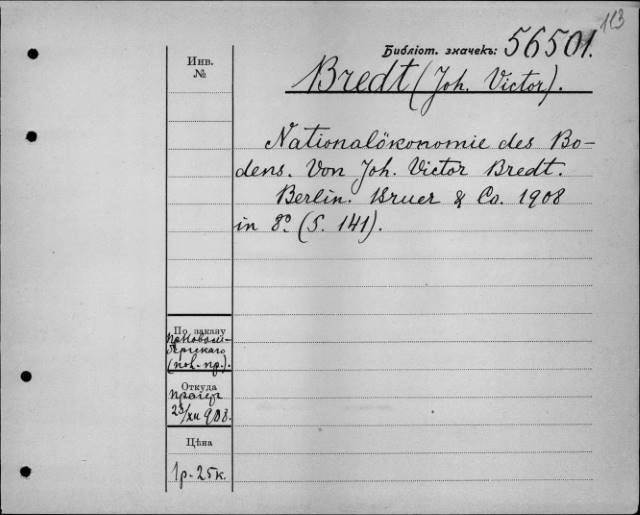 113
Библіот. значекъ: 56501.
Инв.
№
Bredt (Joh. Victor).
Nationalökonomie des Bo-
dens. Von Joh. Victor Bredt.
Berlin. Bruer & Co. 1908
in 8º (S. 141).
По заказу
(пол. пр.).
Откуда
Прагер
23/XII 908.
Цѣна
1 р. 25 к.